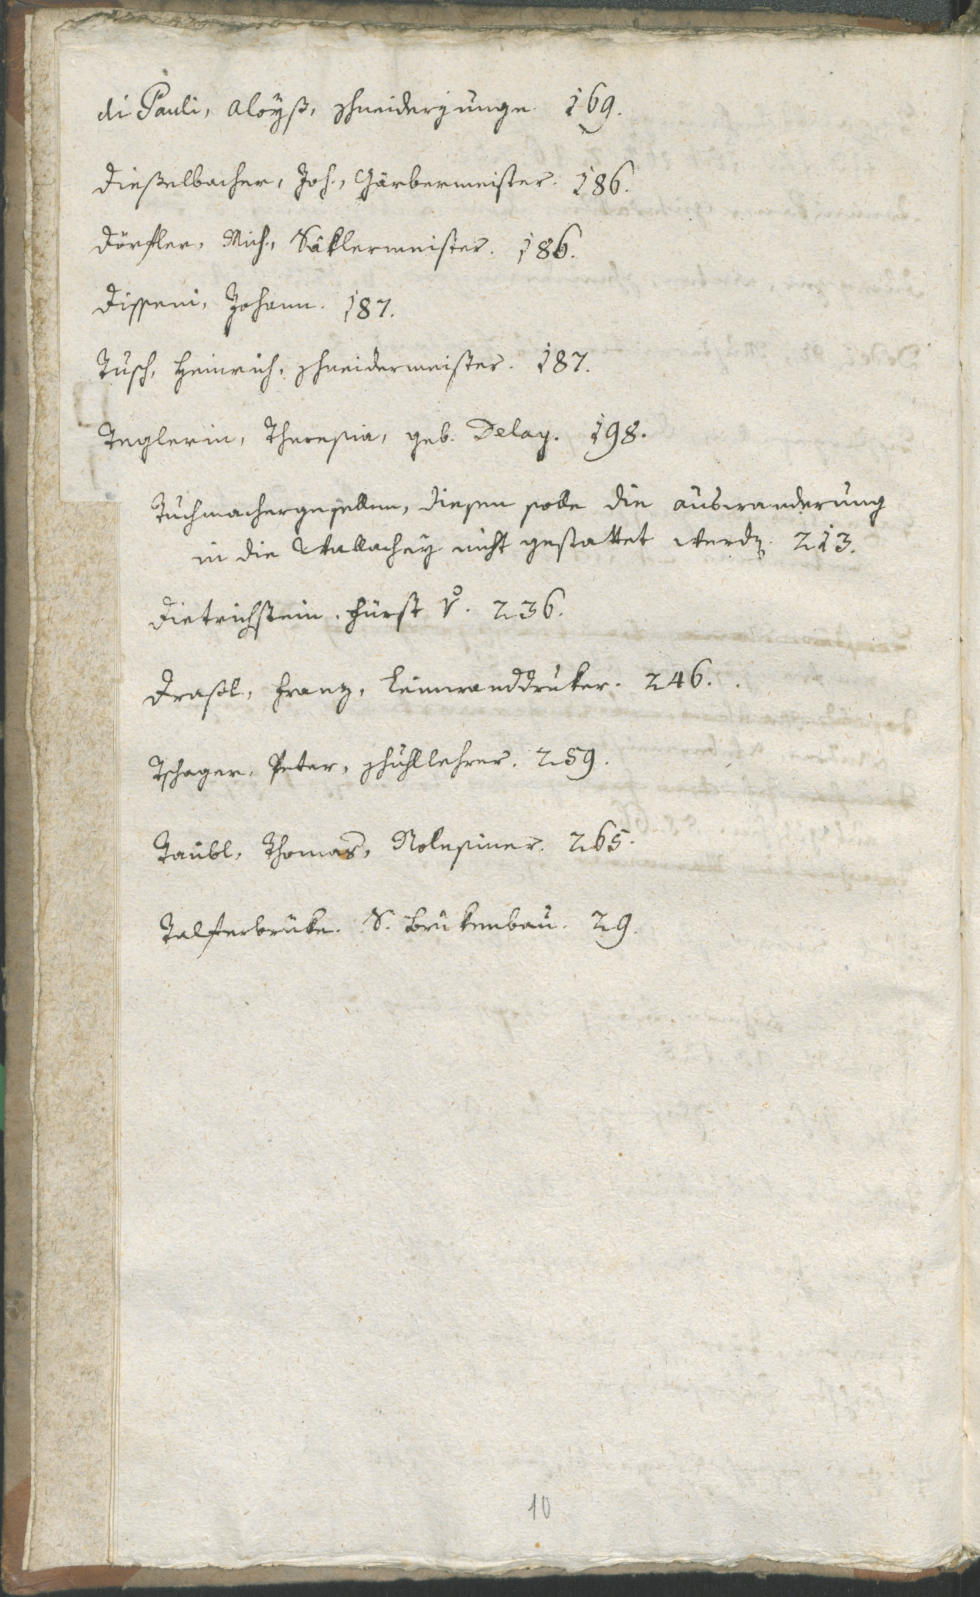 di Pauli, Aloyß, Schneiderjunge. 169.
Dießelbacher, Joh., Gärbermeister. 186.
Dörfler, Mich., Säklermeister. 186.
Disseni, Johann. 187.
Tusch, Heinrich, Schneidermeister. 187.
Teglerin, Theresia, geb. Delag. 198.
Tuchmachergesellen, diesen solle die Auswanderung
in die Wallachey nicht gestattet werdn. 213.
Dietrichstein, Fürst v. 236.
Draßl, Frantz, Leinwanddruker. 246.
Tschager, Peter, Schullehrer. 259.
Taubl, Thomas, 265.
Talferbrüke. S. Brükenbau. 29.
10